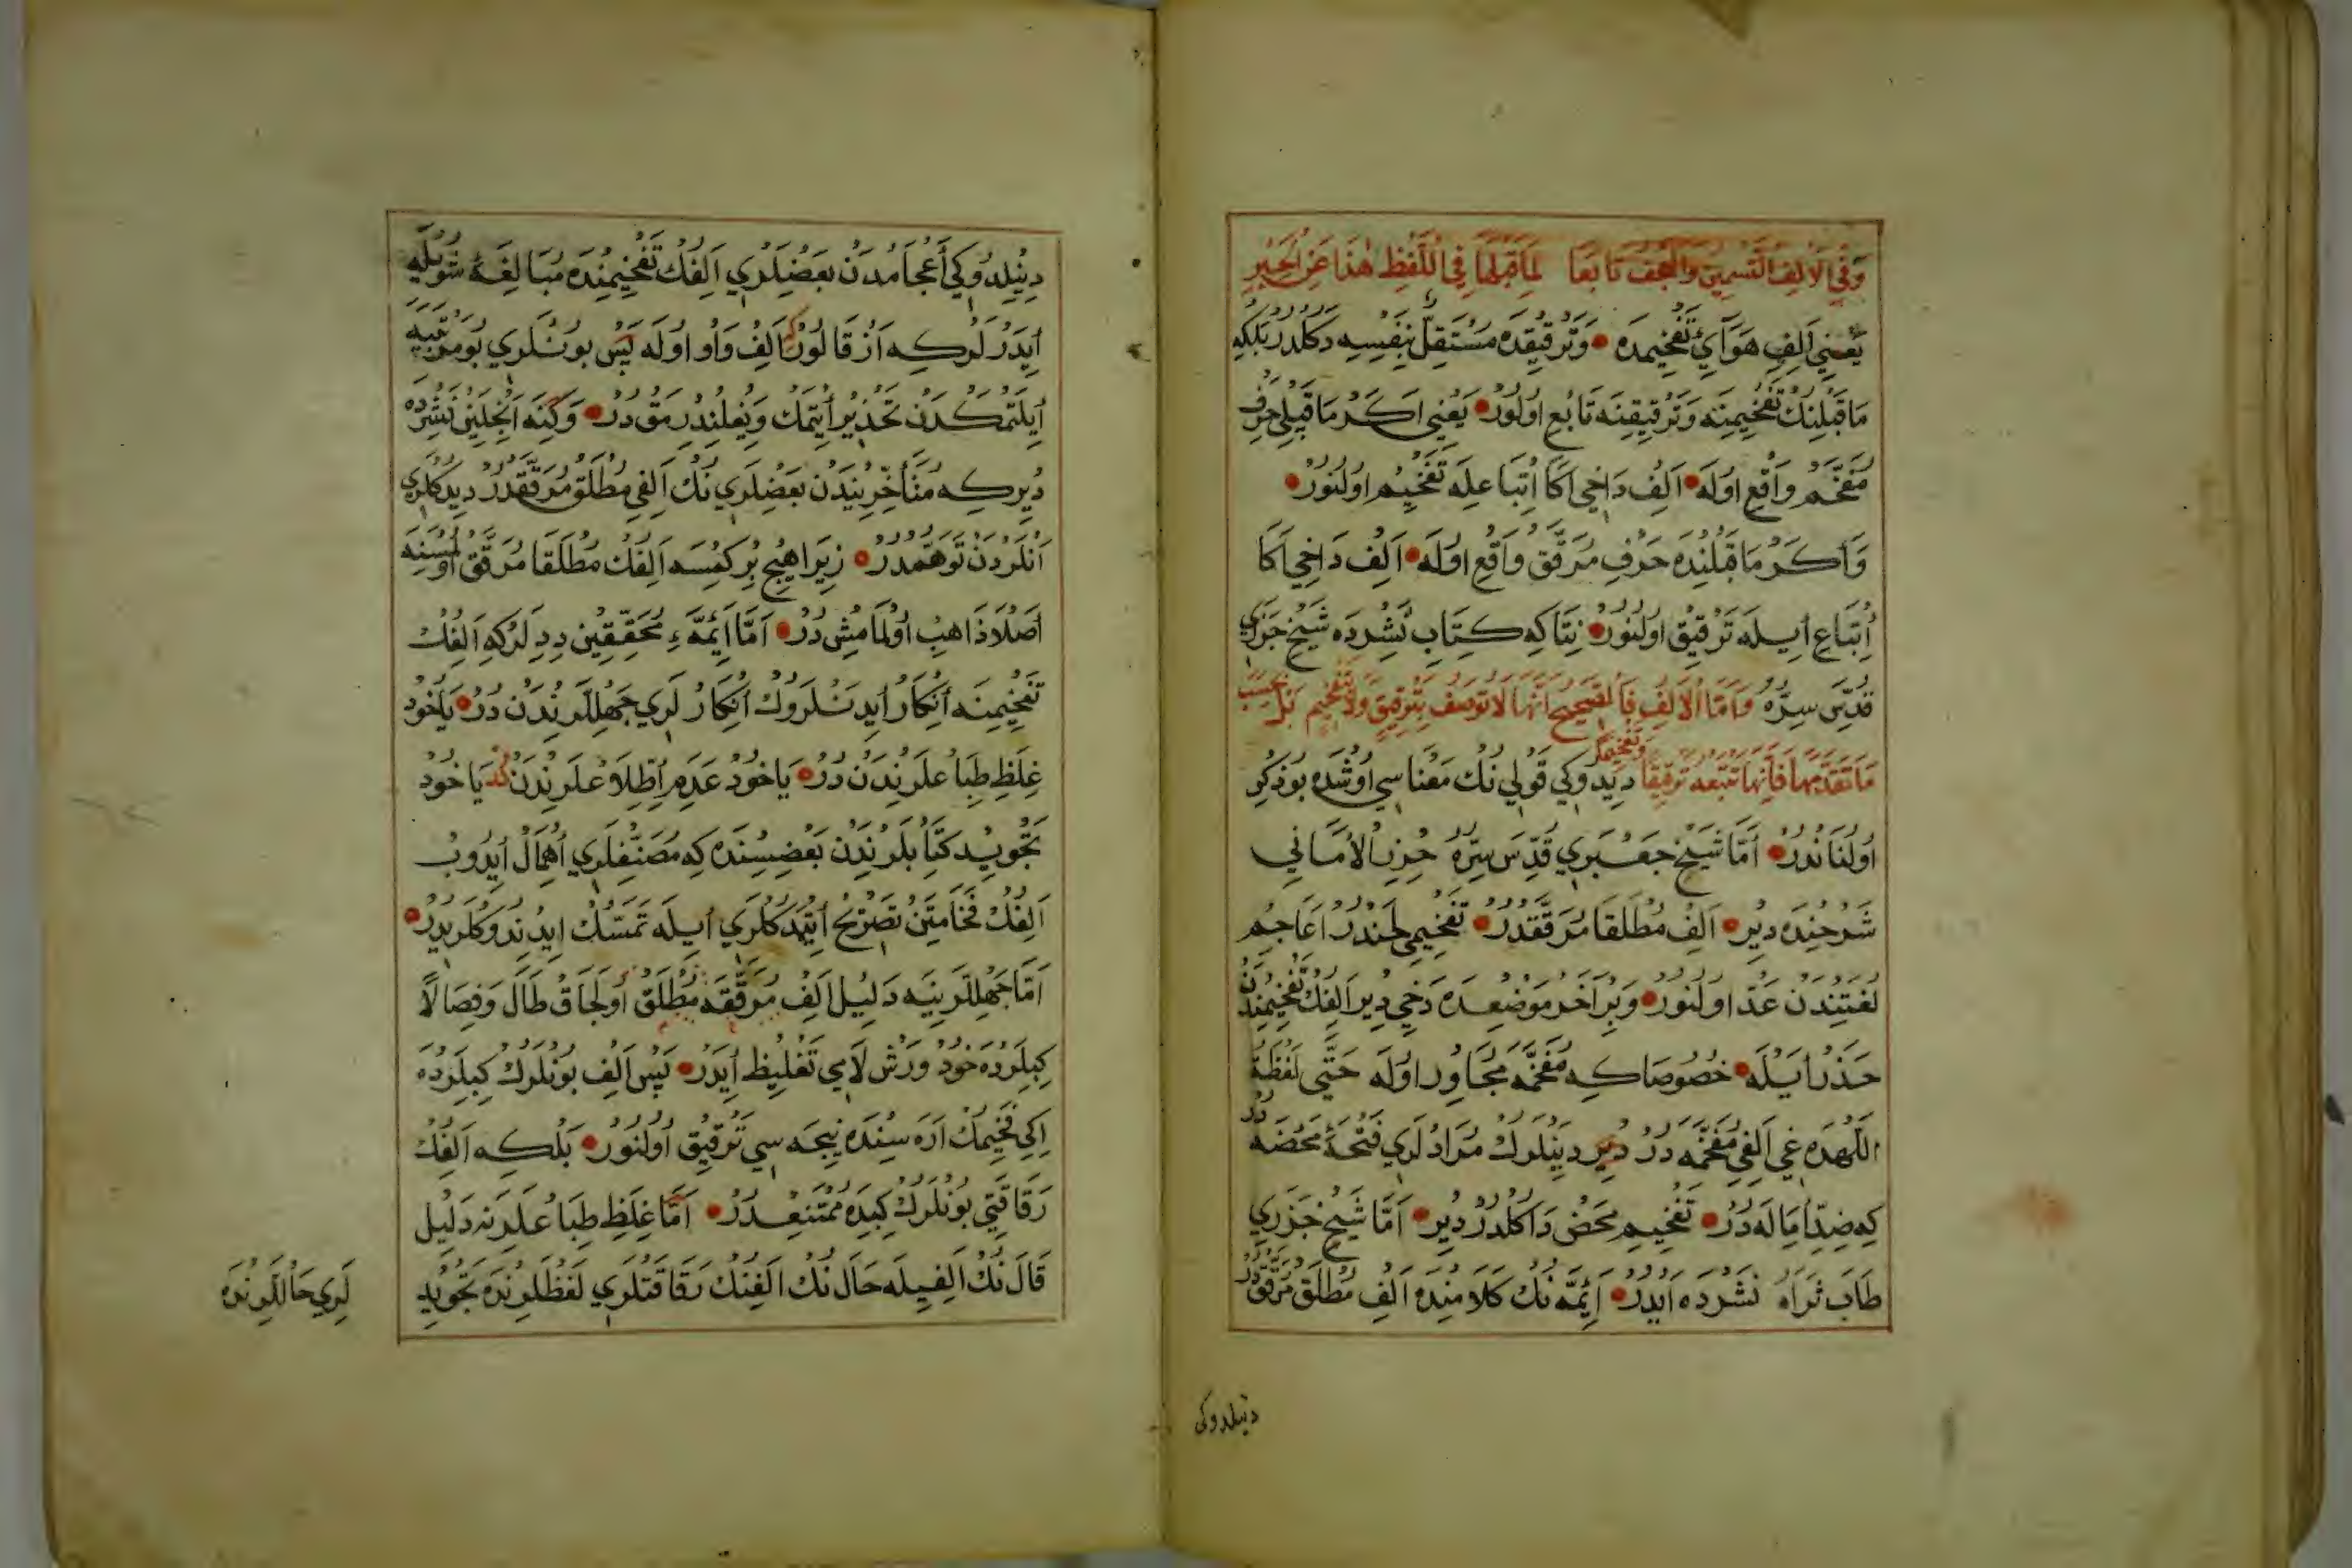 وَفِي الْاَلِفِ التَّسْمِينِ وَالْعَجْفِ تَابَعَا لِمَا قَبْلَهَا فِي اللَّفْظِ هٰذَا عَنِ الْحَبْرِ
يَعْنِي اَلِفِ هَوَائِي تَفْخِيمْدَه وَتَرْقِيقْدَه مُسْتَقِلّ بِنَفْسِه دَكُلْدُرْ بَلْكِه
مَاقَبْلِنُكْ تَفْخِيمِنَه وَتَرْقِيقِنَه تَابِع اُولُورْ يَعْنِي اَكَرْ مَاقَبْلِي حَرْفِ
مُفَخَّم وَاقِع اُولَه اَلِف دَاخِي اَكَا اِتِّبَاعِلَه تَفْخِيم اُولُنُورْ
وَاَكَرْ مَاقَبْلِنْدَه حَرْفِ مُرَقَّق وَاقِع اُولَه اَلِف دَاخِي اَكَا
اِتِّبَاع اِيلَه تَرْقِيق اُولُنُورْ نِتَاكِه كِتَابِ نَشْرْدَه شَيْخ جَزَرِي
قُدِّسَ سِرُّهُ وَاَمَّا الْاَلِفُ فَالصَّحِيحُ اَنَّهَا لَا تُوصَفُ بِتَرْقِيقٍ وَلَا تَفْخِيمٍ بَلْ بِحَسَبِ
مَا تَقَدَّمَهَا فَاِنَّهَا تَتْبَعُهُ تَرْقِيقًا وَتَفْخِيمًا دِيدُوكِي قَوْلِي نُكْ مَعْنَاسِي اُوشْدَه بُو ذِكْرْ
اُولُنَانْدُرْ اَمَّا شَيْخ جَعْبَرِي قُدِّسَ سِرُّهُ حِرْزُ الْاَمَانِي
شَرْحِنْدَه دِيرْ اَلِف مُطْلَقَا مُرَقَّقْدُرْ تَفْخِيمِي لَحْنْدُرْ اَعَاجِم
لُغَتِنْدَنْ عَدّ اُولُنُورْ وَبِرْ اٰخَرْ مَوْضِعْدَه دَخِي دِيرْ اَلِفُكْ تَفْخِيمِنْدَنْ
حَذَرْ اَيْلَه خُصُوصَاكِه مُفَخَّمَه مُجَاوِر اُولَه حَتَّى لَفْظَةُ
اَللّٰهْدَه غِي اَلِفِي مُفَخَّمَه دُرْ دِيرْ دِيَنْلَرُكْ مُرَادْلَرِي فَتْحَه مَحْضَه دُرْ
كِه ضِدِّ اِمَالَه دُرْ تَفْخِيمِ مَحْض دَاكُلْدُرْ دِيرْ اَمَّا شَيْخ جَزَرِي
طَابَ ثَرَاهُ نَشْرْدَه اَيْدُرْ اَئِمَّه نُكْ كَلَامِنْدَه اَلِف مُطْلَق مُرَقَّقْدُرْ
دنيلدوكى
دِينِلْدُوكِي اَعْجَامْدَنْ بَعْضِلَرِي اَلِفُكْ تَفْخِيمِنْدَه مُبَالَغَةُ شُويْلَه
اِيدَرْلَرْكِه اَزْ قَالُورْ كِه اَلِف وَاو اُولَه پَسْ بُونْلَرِي بُو مَرْتَبَيَه
اِيلَتْمَكْدَنْ تَحْذِير اِيتْمَكْ وَيغلندرمق دُرْ وَكِنَه اَنْجِلَيِنْ نَشْرْدَه
دِيرْكِه مُتَأَخِّرِينْدَنْ بَعْضِلَرِي نُكْ اَلِفِي مُطْلَق مُرَقَّقْدُرْ دِيدُكْلَرِي
اَنْلَرْدَنْ تَوَهُّمْدُرْ زِيرَا هِيچ بِرْ كِمْسَه اَلِفُكْ مُطْلَقَا مُرَقَّق اُولْمَسِنَه
اَصْلَا ذَاهِبْ اُولْمَامِشْ دُرْ اَمَّا اَئِمَّهءِ مُحَقِّقِين دِدِلَرْكِه اَلِفُكْ
تَفْخِيمِنَه اِنْكَارْ اِيدَنْلَرُوكْ اِنْكَارْلَرِي جَهْلِلَرِنْدَنْ دُرْ يَاخُودْ
غِلَظِ طِبَاعْلَرِنْدَنْ دُرْ يَاخُودْ عَدَمِ اِطِّلَاعْلَرِنْدَنْ دُرْ يَاخُودْ
تَجْوِيد كِتَابْلَرِنْدَنْ بَعْضِسِنْدَه كِه مُصَنِّفْلَرِي اِهْمَالْ اِيدُوبْ
اَلِفُكْ فَخَامَتِنْ تَصْرِيح اِتْمَدُكْلَرِي اِيلَه تَمَسُّكْ اِيدِنْدُوكْلَرِيدُرْ
اَمَّا جَهْلِلَرِينَه دَلِيل اَلِف مُرَقَّقَه مُطْلَق اُولِجَاق طَالَ وَفِصَالًا
كِبِلَرْدَه خُودْ وَرْش لَامِي تَغْلِيظ اِيدَرْ پَسْ اَلِف بُونْلَرُكْ كِبِلَرْدَه
اِكِي فَخِيمُكْ اَرَه سِنْدَه نِيجَه سِي تَرْقِيق اُولُنُورْ بَلْكِه اَلِفُكْ
رَقَاقَتِي بُونْلَرُكْ كِبِدَه مُمْتَنِعْدُرْ اَمَّا غِلَظِ طِبَاعْلَرِنَه دَلِيل
قَالَ نُكْ اَلِفِيلَه حَالَ نُكْ اَلِفِنُكْ رَقَاقَتْلَرِي لَفْظْلَرِنْدَه تَجْوِيد
لَرِي حَالْلَرِنْدَه